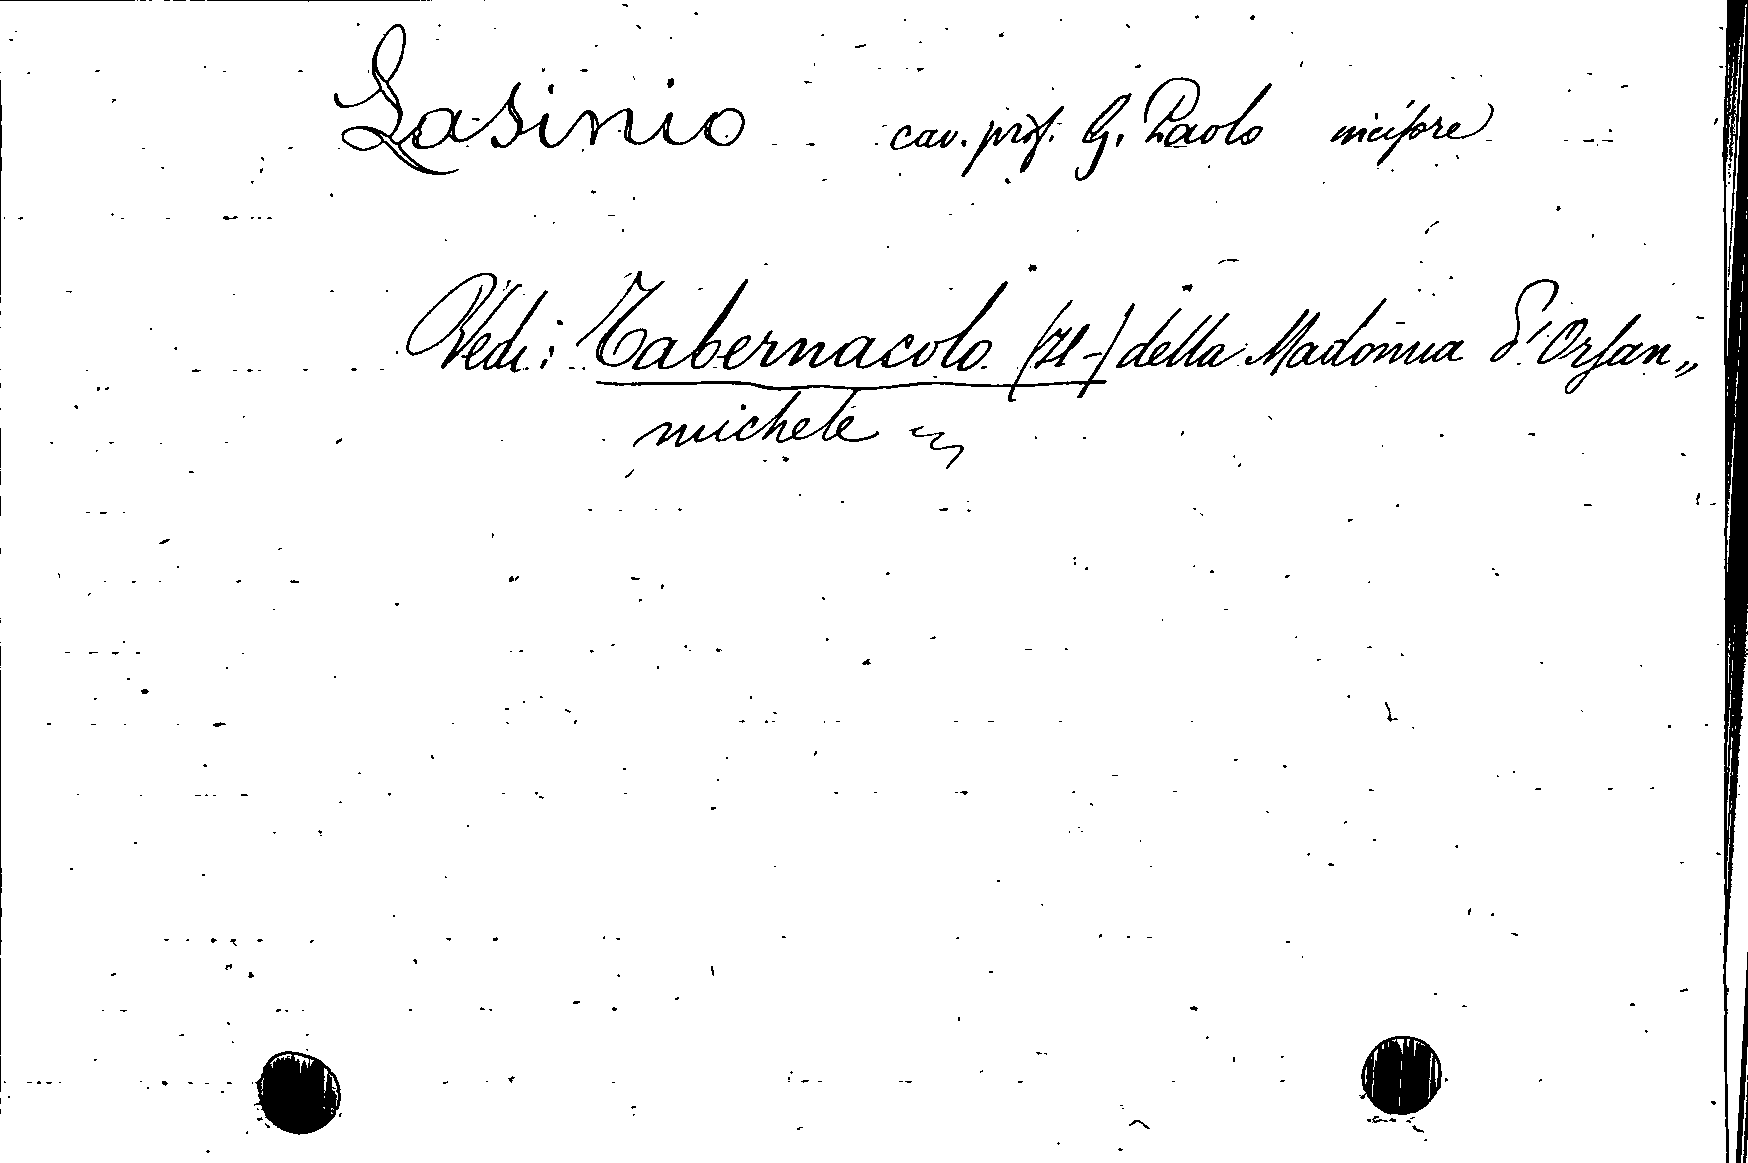 Lasinio cav. prof. G. Paolo incisore
Vedi: Tabernacolo (Il-) della Madonna d'Orsan„
michele